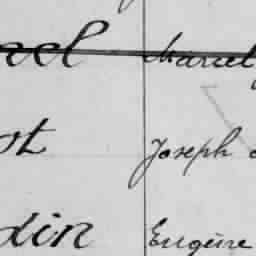 ael Marcel
ot Joseph
din Eugène